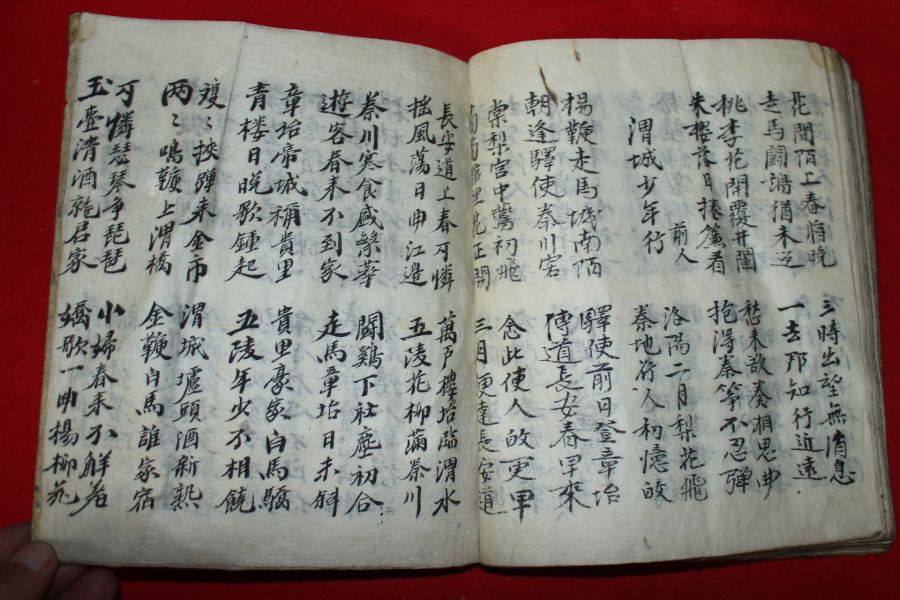 花間陌上春將晚
走馬鬪鷄猶未返
三時出望無消息
一去那知行近遠
桃李花開覆井闌
朱樓落日捲簾看
愁來欲奏相思曲
抱得秦箏不忍彈
渭城少年行 前人
洛陽二月梨花飛
秦地行人初憶皈
楊鞭走馬城南陌
朝逢驛使秦川客
驛使前日登章坮
傳道長安春早來
棠梨宮中鷰初飛
里花正開
念此使人皈更早
三月更達長安道
長安道上春可憐
搖風蕩日曲江邊
萬戶樓坮臨渭水
五陵花柳滿秦川
秦川寒食盛繁華
遊客春來不到家
鬪鷄下社塵初合
走馬章坮日未斜
章坮帝城稱貴里
青樓日晚歌鍾起
貴里豪家白馬驕
五陵年少不相饒
雙〻挾彈來金市
兩〻鳴鞭上渭橋
渭城壚頭酒新熟
金鞭白馬誰家宿
可憐瑟琴爭琵琶
玉壺清酒就君家
小婦春來不解羞
嬌歌一曲楊柳花